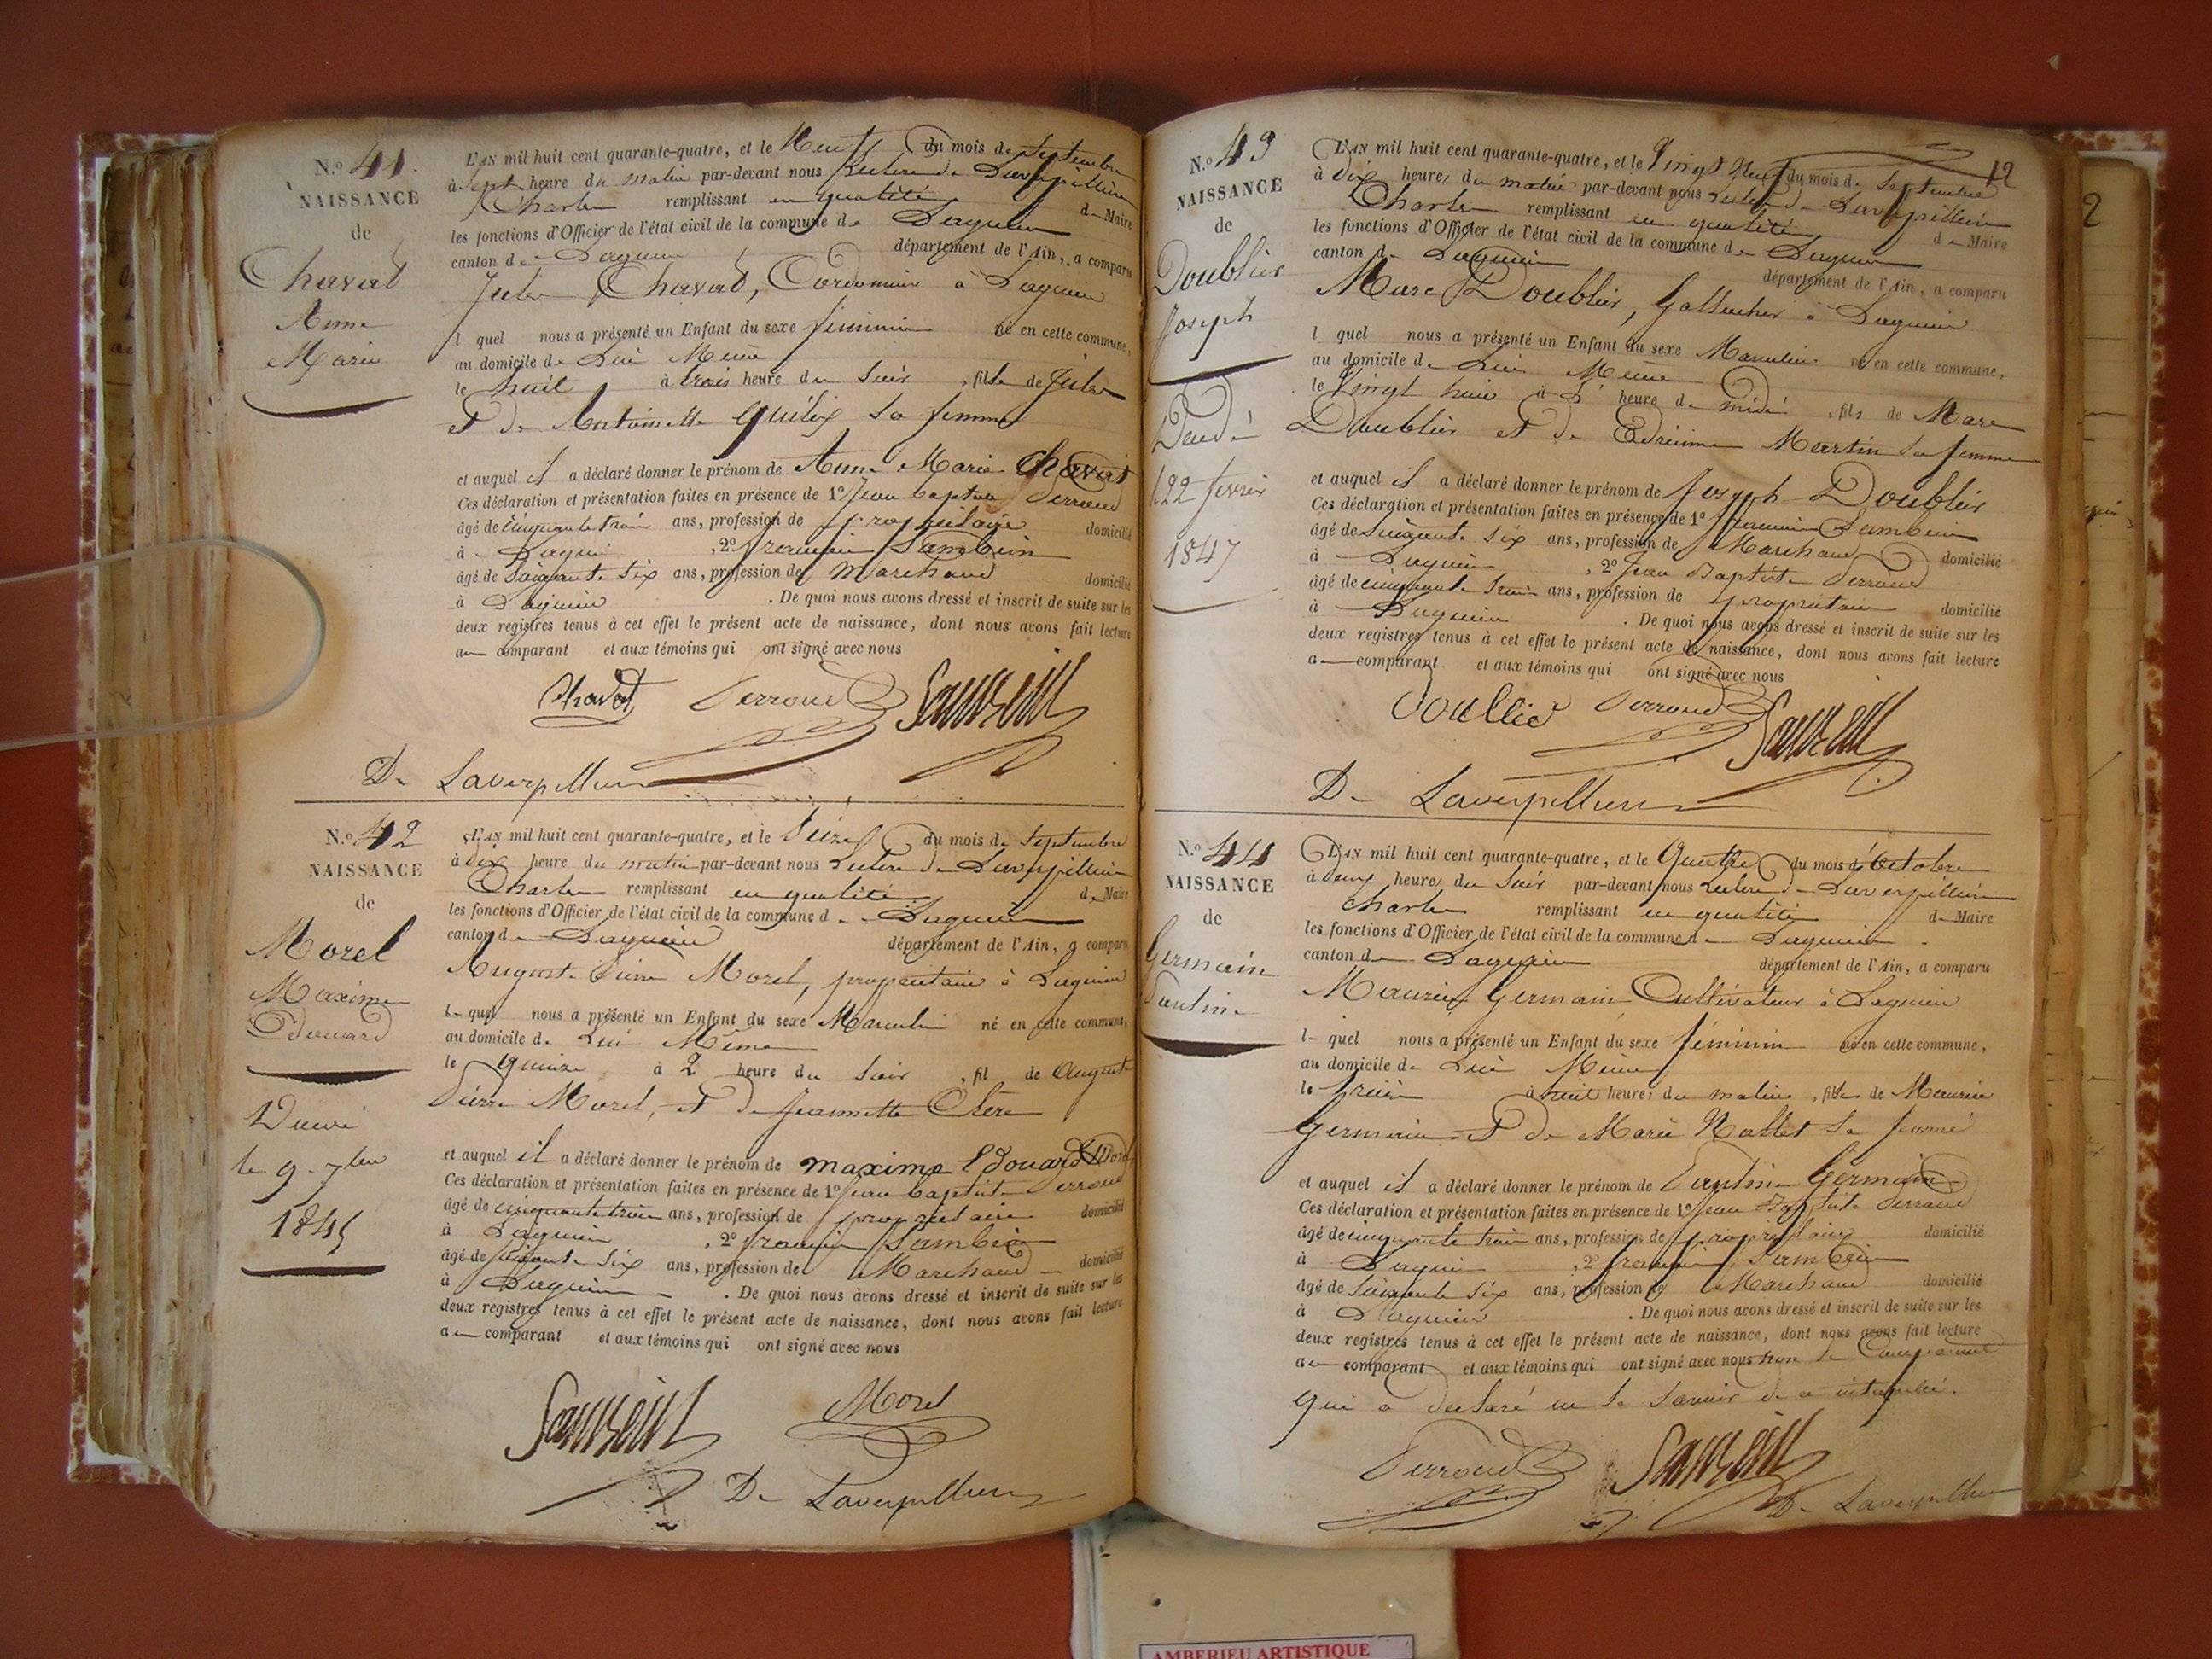 N.o 41.
NAISSANCE
de
Chavat
Anne
Marie
L'AN mil huit cent quarante-quatre, et le Neuf du mois de Septembre
à sept heure du matin par-devant nous de Laverpillière
Charles remplissant en qualité de Maire
les fonctions d'Officier de l'état civil de la commune de Lagnieu
canton de Lagnieu département de l'Ain, a comparu
Chavat, Cordonnier à Lagnieu
l quel nous a présenté un Enfant du sexe féminin né en cette commune,
au domicile de Lui Même
le huit à trois heure du Soir, fille de
et de Antoinette sa femme
et auquel il a déclaré donner le prénom de Anne Marie Chavat
Ces déclaration et présentation faites en présence de 1o Jean Baptiste Perroud
âgé de cinquante trois ans, profession de propriétaire domicilié
à Lagnieu, 2o Sambein
âgé de Soixante Six ans, profession de Marchand domicilié
à Lagnieu. De quoi nous avons dressé et inscrit de suite sur les
deux registres tenus à cet effet le présent acte de naissance, dont nous avons fait lecture
au comparant et aux témoins qui ont signé avec nous
Chavat Perroud
De Laverpillière
N.o 42
NAISSANCE
de
Morel
Maxime
Edouard
le 9 7bre
L'AN mil huit cent quarante-quatre, et le Seize du mois de Septembre
à dix heure du matin par-devant nous de Laverpillière
Charles remplissant en qualité de Maire
les fonctions d'Officier de l'état civil de la commune d Lagnieu
canton de Lagnieu département de l'Ain, a comparu
Auguste Pierre Morel, propriétaire à Lagnieu
le quel nous a présenté un Enfant du sexe Masculin né en cette commune,
au domicile de Lui Même
le quinze à 2 heure du Soir, fil de Auguste
Pierre Morel, et de Jeannette
et auquel il a déclaré donner le prénom de maxime Edouard Morel
Ces déclaration et présentation faites en présence de 1o Jean Baptiste Perroud
âgé de cinquante trois ans, profession de propriétaire domicilié
à Lagnieu, 2o Sambein
âgé de Soixante Six ans, profession de Marchand domicilié
à Lagnieu. De quoi nous avons dressé et inscrit de suite sur les
deux registres tenus à cet effet le présent acte de naissance, dont nous avons fait lecture
au comparant et aux témoins qui ont signé avec nous
Morel
De Laverpillière
12
N.o 43
NAISSANCE
de
Doublier
Joseph
22 février
1847
L'AN mil huit cent quarante-quatre, et le Vingt Neuf du mois de Septembre
à Dix heures du matin par-devant nous de Laverpillière
Charles remplissant en qualité de Maire
les fonctions d'Officier de l'état civil de la commune de Lagnieu
canton de Lagnieu département de l'Ain, a comparu
Marc Doublier, à Lagnieu
l quel nous a présenté un Enfant du sexe Masculin né en cette commune,
au domicile de Lui Même
le Vingt huit à heure de midi, fils de Marc
Doublier et de Martin sa femme
et auquel il a déclaré donner le prénom de Joseph Doublier
Ces déclaration et présentation faites en présence de 1o Sambein
âgé de Soixante Six ans, profession de Marchand domicilié
à Lagnieu, 2o Jean Baptiste Perroud
âgé de cinquante trois ans, profession de propriétaire domicilié
à Lagnieu. De quoi nous avons dressé et inscrit de suite sur les
deux registres tenus à cet effet le présent acte de naissance, dont nous avons fait lecture
au comparant et aux témoins qui ont signé avec nous
Perroud
De Laverpillière
N.o 44
NAISSANCE
de
Germain
L'AN mil huit cent quarante-quatre, et le Quatre du mois d'Octobre
à deux heures du Soir par-devant nous de Laverpillière
Charles remplissant en qualité de Maire
les fonctions d'Officier de l'état civil de la commune de Lagnieu
canton de Lagnieu département de l'Ain, a comparu
Maurice Germain Cultivateur à Lagnieu
le quel nous a présenté un Enfant du sexe féminin né en cette commune,
au domicile de Lui Même
le trois à huit heures du matin, fille de Maurice
Germain et de Marie Nallet sa femme
et auquel il a déclaré donner le prénom de Germain
Ces déclaration et présentation faites en présence de 1o Jean Baptiste Perroud
âgé de cinquante trois ans, profession de propriétaire domicilié
à Lagnieu, 2o Sambein
âgé de Soixante Six ans, profession de Marchand domicilié
à Lagnieu. De quoi nous avons dressé et inscrit de suite sur les
deux registres tenus à cet effet le présent acte de naissance, dont nous avons fait lecture
au comparant et aux témoins qui ont signé avec nous non le Comparant
qui a déclaré ne le savoir de ce
Perroud
De Laverpillière
AMBERIEU ARTISTIQUE